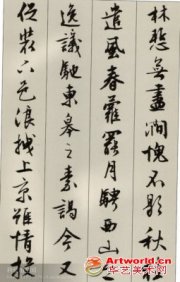 林慙無盡澗愧不歇秋桂
遣風春蘿罷月騁西山之
逸議馳東皋之素謁今又
促裝下邑浪栧上京雖情投
Artworld.cn
华艺美术网